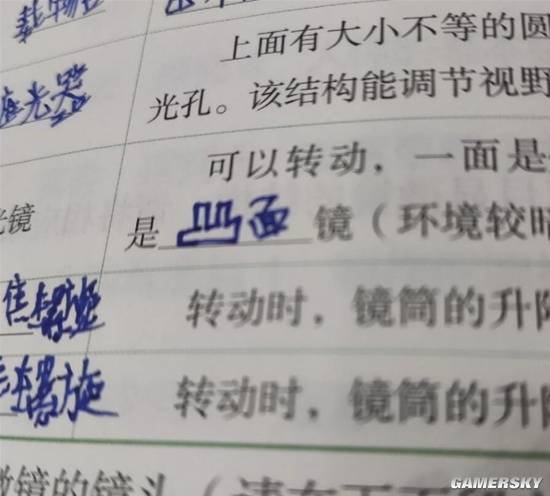 载物台
上面有大小不等的圆
遮光器
光孔。该结构能调节视野
可以转动，一面是
光镜
是凹面镜（环境较暗
焦螺旋
转动时，镜筒的升降
焦螺旋
转动时，镜筒的升降
微镜的镜头（请在下
GAMERSKY